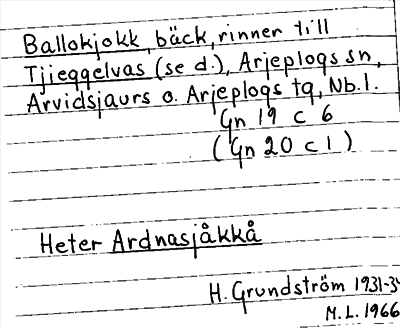 Ballokjokk, bäck, rinner till
Tjieggelvas (se d.), Arjeplogs sn,
Arvidsjaurs o. Arjeplogs tg, Nb. l.
Gn 19 c 6
(Gn 20 c 1)
Heter Ardnasjåkkå
H. Grundström 1931-34
M. L. 1966